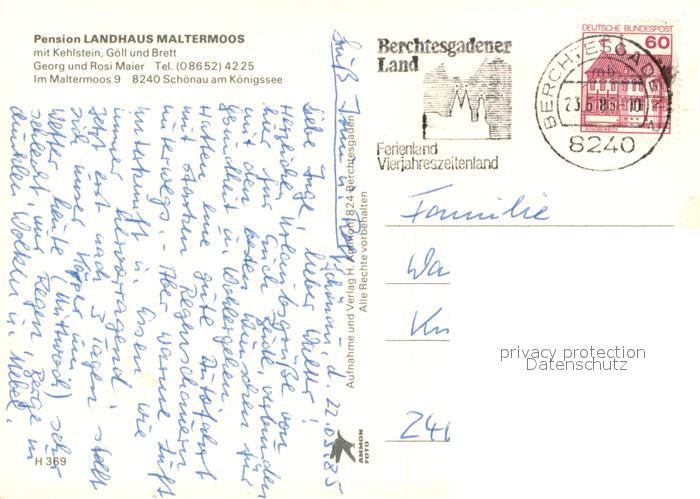 Pension LANDHAUS MALTERMOOS
mit Kehlstein, Göll und Brett
Georg und Rosi Maier Tel. (08652) 4225
Im Maltermoos 9 8240 Schönau am Königssee
Berchtesgadener
Land
Ferienland
Vierjahreszeitenland
DEUTSCHE BUNDESPOST
60
BERCHTESGADEN
mb
8240
d. 22.05.85
Liebe Inge, lieber Walter!
Herzliche Urlaubsgrüße von
hier für Euch beide, verbunden
mit den besten Wünschen für
Gesundheit u. Wohlergehen.
Hatten eine gute Autofahrt
mit starken Regenschauern
unterwegs. - Aber warme Luft
Unterkunft u. Essen wie
immer hervorragend.
Jetzt erst nach 3 Tagen stellt
sich unser Körper um.
Wetter heute (Mittwoch) sehr
schlecht, nur Regen, Berge in
dunklen Wolken u. Nebel.
Aufnahme und Verlag H. Ammon 824 Berchtesgaden
Alle Rechte vorbehalten
AMMON
FOTO
H 369
Familie
Wa
Kn
privacy protection
Datenschutz